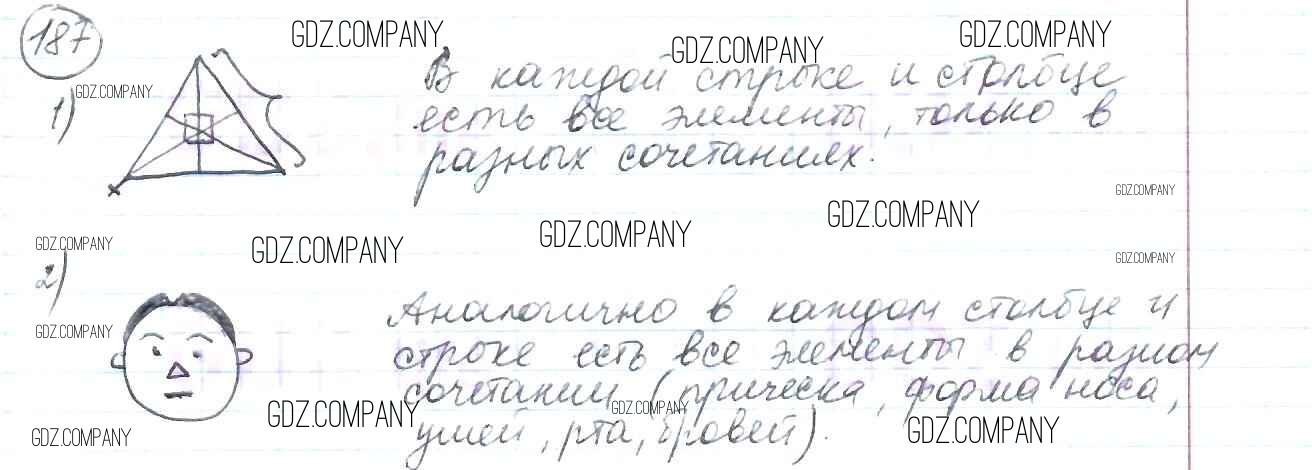 187
GDZ.COMPANY GDZ.COMPANY GDZ.COMPANY
1) GDZ.COMPANY В каждой строке и столбце
есть все элементы, только в
разных сочетаниях.
GDZ.COMPANY
GDZ.COMPANY GDZ.COMPANY GDZ.COMPANY GDZ.COMPANY
GDZ.COMPANY
2)
Аналогично в каждом столбце и
GDZ.COMPANY
строке есть все элементы в разном
сочетании (прическа, форма носа,
GDZ.COMPANY GDZ.COMPANY
ушей, рта, бровей).
GDZ.COMPANY GDZ.COMPANY